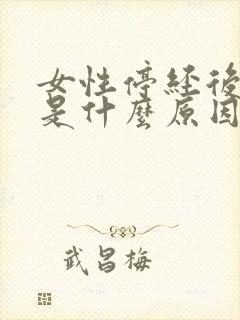 女性停経後
是什麼原因
武昌梅